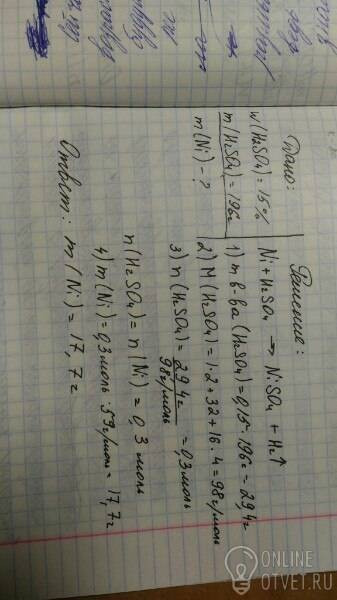 Дано:
w(H₂SO₄) = 15%
m(H₂SO₄) = 196г
m(Ni) - ?
Решение:
Ni + H₂SO₄ → NiSO₄ + H₂↑
1) m в-ва (H₂SO₄) = 0,15 · 196г = 29,4г
2) M(H₂SO₄) = 1·2 + 32 + 16·4 = 98 г/моль
3) n(H₂SO₄) = 29,4г / 98г/моль = 0,3 моль
n(H₂SO₄) = n(Ni) = 0,3 моль
4) m(Ni) = 0,3 моль · 59г/моль = 17,7г
Ответ: m(Ni) = 17,7г
ONLINE
OTVET.RU